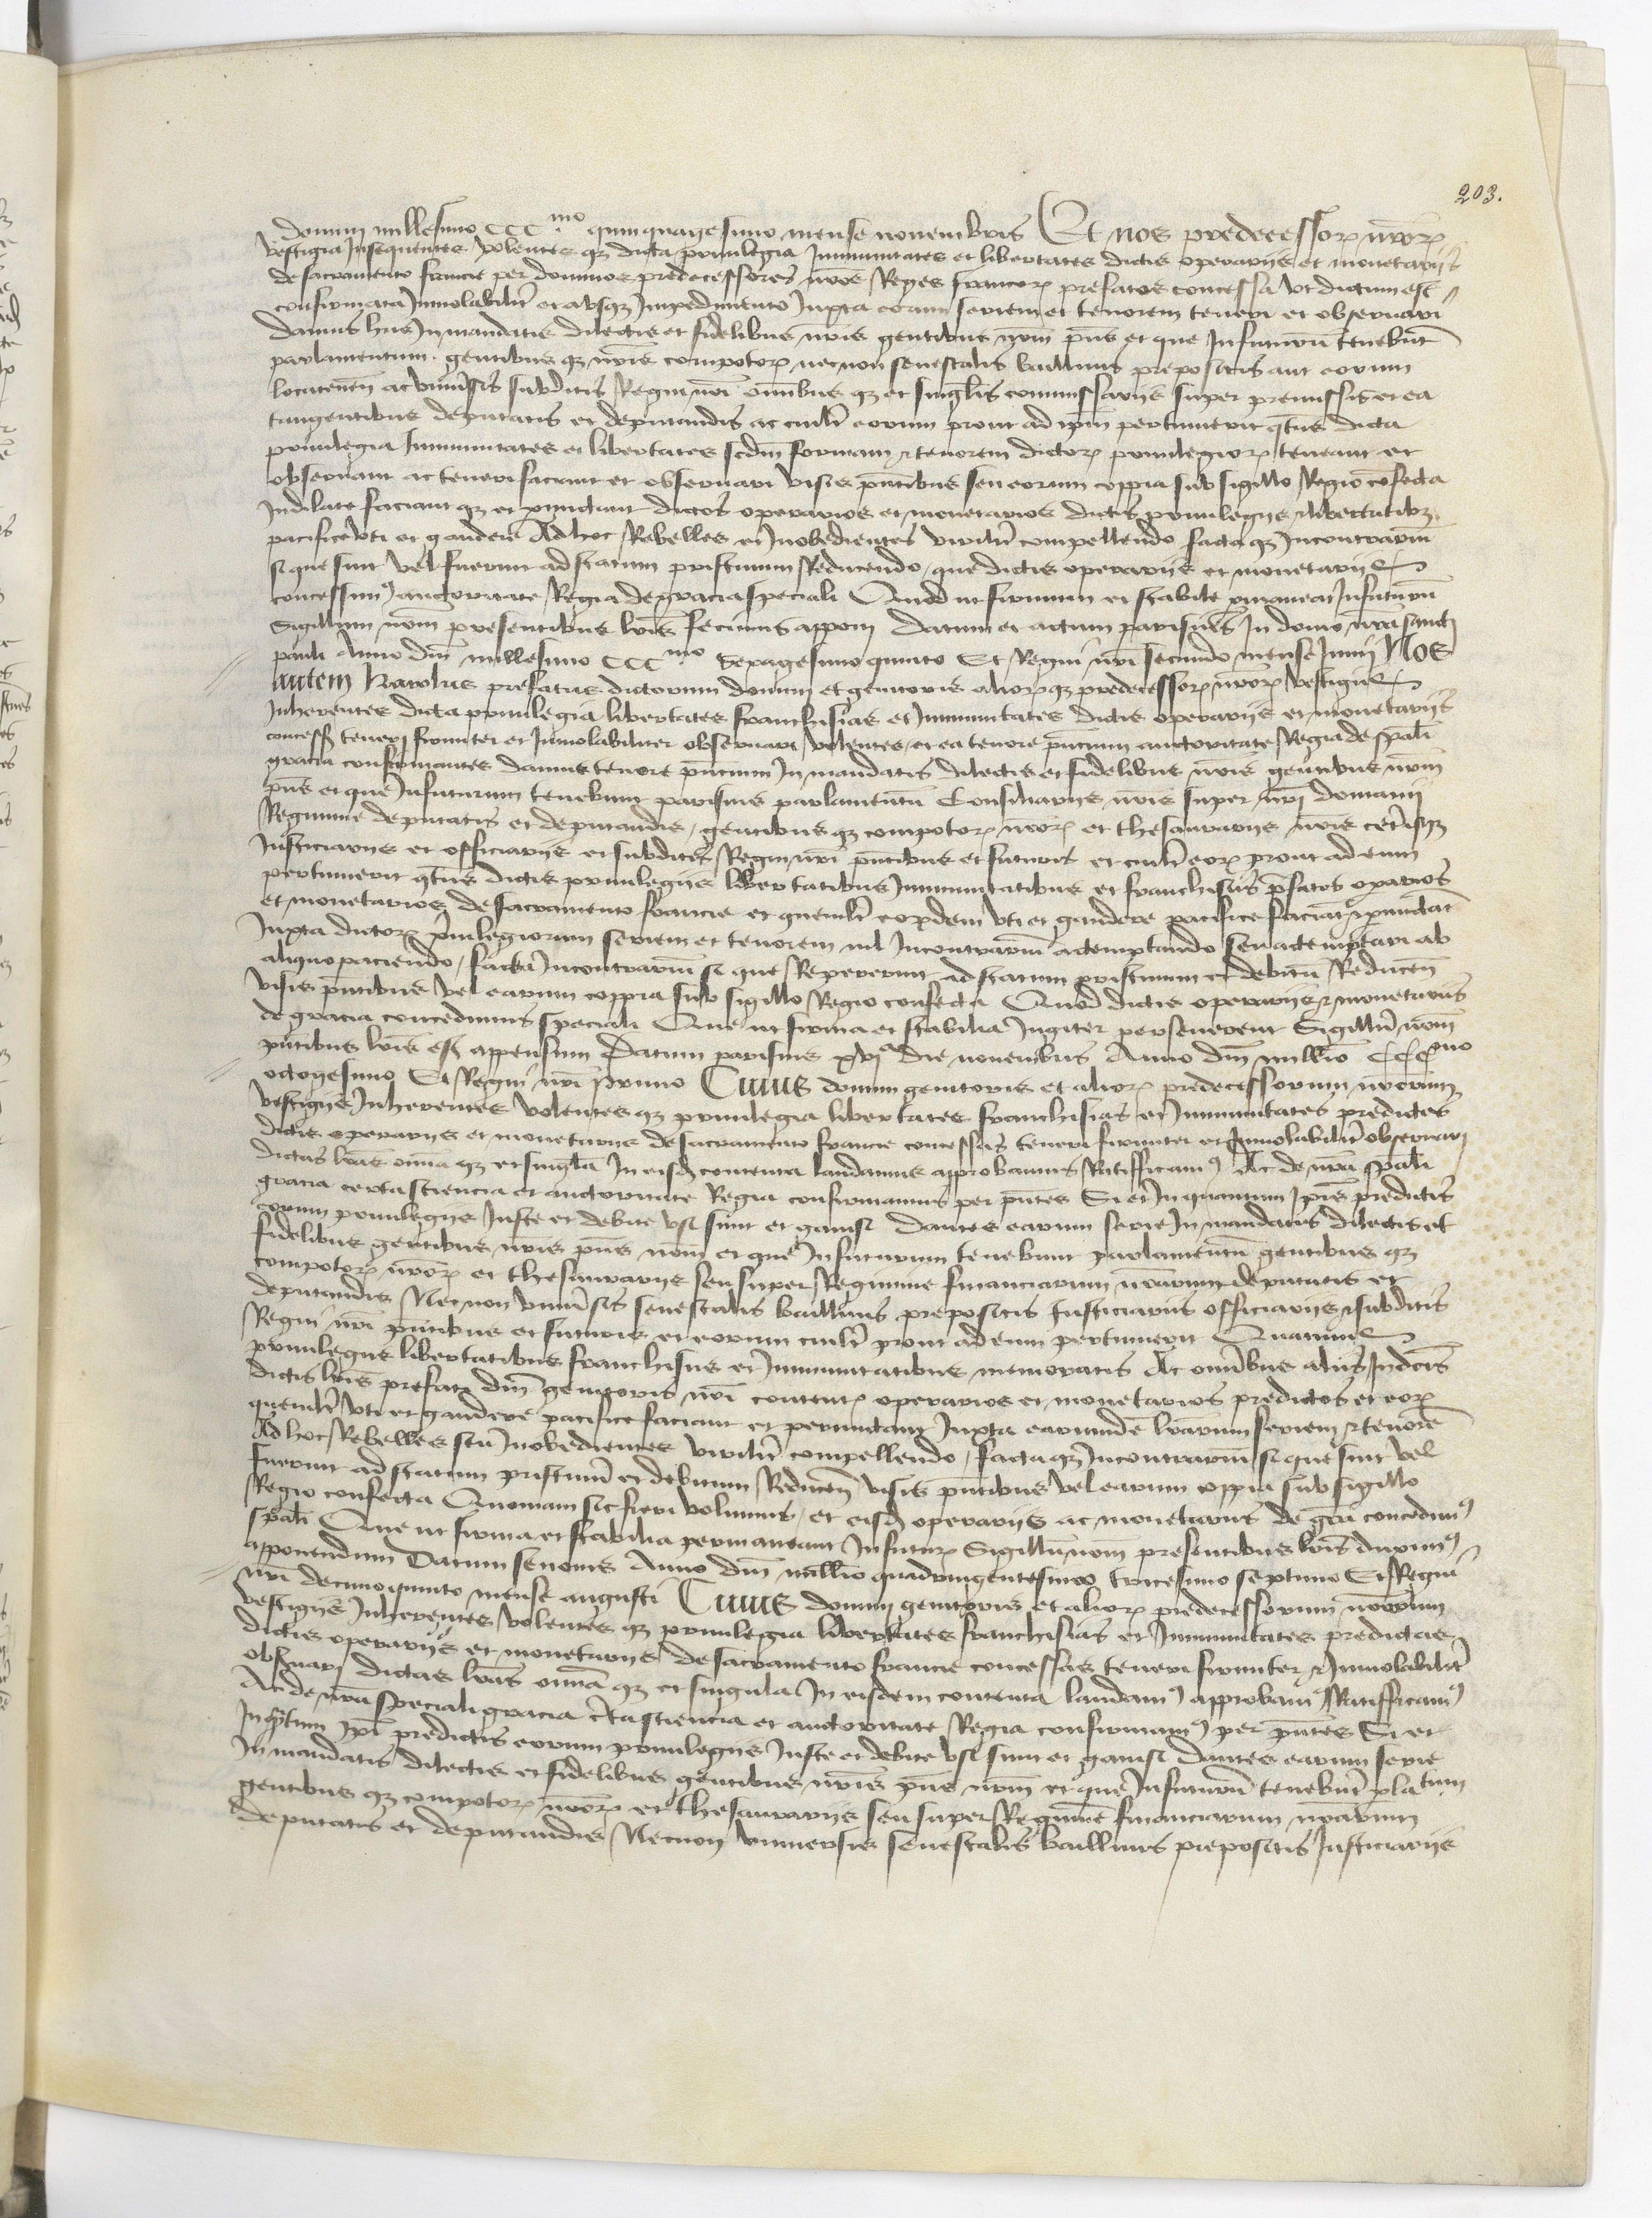 203.
domini millesimo CCC.mo quinquagesimo mense novembris Et nos predecessoꝝ nr̄oꝝ
vestigia Insequentes volentes qȝ dicta privilegia Immunitates et libertates dictis operariis et monetariis
de sacramento francie per dominos predecessores nr̄os Reges francoꝝ prefatos concessa ut dictum est
confirmata Inviolabilit̄ et absqȝ Impedimento Juxta eorum seriem et tenorem teneri et observari
Damus hiis In mandatis dilectis et fidelibus nr̄is gentibus nr̄m pn̄s et que In futurū tenebūt
parlamentum. gentibus qȝ nr̄is compotoꝝ necnon senescalis baillivis prepositis aut eorum
locatenen̄ ac univ̄sis subditis Regni nr̄i omībus qȝ et singl̄is comissariis super premissis et ea
tangentibus deputatis et deputandis ac cuilt̄ eorum prout ad ip̄m pertinuerit qt̄us dicta
privilegia Immunitates et libertates scd̄m formam et tenorem dictoꝝ privilegioꝝ teneant et
observant ac teneri faciant et observari visis pn̄tibus seu eorum coppia sub sigillo Regio cōfecta
Indilate faciant qȝ et ꝑmictant dictos operarios et monetarios dictis privilegiis et libertatibȝ
pacifice uti et gaudere Ad hoc Rebelles et Inobedientes virilit̄ compellendo facta qȝ Incontrariū
si que sint vel fuerint ad statum pristinum Reducendo, que dictis operariis et monetariis
concessimꝰ auctoritate Regia de gracia speciali Quod ut firmum et stabile ꝑmaneat In futurū
Sigillum nr̄m presentibus lr̄is fecimus apponi Datum et actum parisius In domo nr̄a sancti
pauli Anno dn̄i millesimo CCCmo Sexagesimo quinto Et Regni nr̄i secundo mense Junii Nos
autem Karolus prefatus dictorum domini et genitoris alioꝝqȝ predecessoꝝ nr̄oꝝ vestigiis
Inherentes dicta privilegia libertates franchisias et Immunitates dictis operariis et monetariis
concess̄ teneri firmiter et Inviolabiliter observari volentes, et ea tenore pn̄cium auctoritate Regia de sp̄ali
gracia confirmantes damus tenore pn̄cium In mandatis dilectis et fidelibus nr̄is gentibus nr̄m
pn̄s et que In futurum tenebunt parisius parlamentū Consiliariis nr̄is super nr̄i domanii
Regimine deputatis et deputandis, gentibus qȝ compotoꝝ nr̄oꝝ et thesaurariis nr̄is cet̄isqȝ
Justiciariis et officiariis et subditis Regni nr̄i pn̄tibus et futuris et cuilt̄ eoꝝ prout ad eum
pertinuerit qt̄us dictis privilegiis libertatibus Immunitatibus et franchisiis p̄fatos oꝑarios
et monetarios de sacramento francie et quemlt̄ eoꝝdem uti et gaudere pacifice faciāt et ꝑmictāt
Juxta dictoꝝ privilegiorum seriem et tenorem nil Incontrariū actemptando seu actemptari ab
aliquo paciendo, facta Incontrariū si que Repererint ad statum pristinum et debitū Reducen̄
visis pn̄tibus vel earum coppia sub sigillo Regio confecta Quod dictis operariis et monetariis
de gracia concedimus speciali Que ut firma et stabilia Jugiter perseverent Sigillū nr̄m
pn̄tibus lr̄is ess̄ appensum Datum parisius xvia die novembris Anno dn̄i mill̄io CCCmo
octogesimo Et Regni nr̄i primo Cuius domini genitoris et alioꝝ predecessorum nr̄orum
vestigiis Inherentes volentes qȝ privilegia libertates franchisias et Immunitates predictas
dictis operariis et monetariis de sacramento francie concessas teneri firmiter et Inviolabilit̄ observari
dictas lr̄as omīa qȝ et singl̄a In eisd̄ contenta laudamus approbamus Ratifficamꝰ Ac de nr̄a sp̄ali
gracia certa sciencia et auctoritate Regia confirmamus per pn̄tes Si et In quantum Ip̄is predictis
eorum privilegiis Juste et debite usi sunt et gavisi Dantes earum serie In mandatis dilectis et
fidelibus gentibus nr̄is pn̄s nr̄m et que In futurum tenebunt parlamentū gentibus qȝ
compotoꝝ nr̄oꝝ et thesaurariis seu super Regimine financiarum nr̄arum deputatis et
deputandis Necnon univ̄sis senescalis baillivis prepositis Justiciariis officiariis et subditis
Regni nr̄i pn̄tibus et futuris et eorum cuilt̄ prout ad eum pertinuerit Quatinus
privilegiis libertatibus franchisiis et Immunitatibus memoratis Ac omībus aliis In dc̄is
dictis lr̄is prefati dn̄i genitoris nr̄i contentꝭ operarios et monetarios predictos et eoꝝ
quemlt̄ uti et gaudere pacifice faciant et permictant Juxta earumdē lr̄arum seriem et tenorē
Ad hoc Rebelles seu Inobedientes virilit̄ compellendo, facta qȝ Incontrariū si que sint vel
fuerint ad statum pristinū et debitum Reducen̄ visis pn̄tibus vel earum coppia sub sigillo
Regio confecta Quoniam sic fieri volumus, et eisd̄ operariis ac monetariis de gr̄a concedimꝰ
sp̄ali Que ut firma et stabilia permaneant In futurꝝ Sigillū nr̄m presentibus lr̄is duximꝰ
apponendum Datum senonis Anno dn̄i mill̄io quadringentesimo tricesimo septimo Et Regni
nr̄i decimoquinto mense augusti Cuius domini genitoris et alioꝝ predecessorum nr̄orum
vestigiis Inherentes volentes qȝ privilegia libertates franchisias et Immunitates predictas
dictis operariis et monetariis de sacramento francie concessas teneri firmiter et Inviolabilit̄
obs̄vari dictas lr̄as omīa qȝ et singula In eisdem contenta laudamꝰ approbamꝰ Ratifficamꝰ
Ac de nr̄a speciali gracia c̄ta sciencia et auctoritate Regia confirmamꝰ per pn̄tes Si et
In qn̄tum Ip̄i predictis eorum privilegiis Juste et debite usi sunt et gavisi Dantes earum serie
In mandatis dilectis et fidelibus gentibus nr̄is pn̄s nr̄m et que In futurū tenebūt ꝑlatum
gentibus qȝ compotoꝝ nr̄oꝝ et thesaurariis seu super Regimine financiarum nr̄arum
deputatis et deputandis Necnon universis senescalis baillivis prepositis Justiciariis